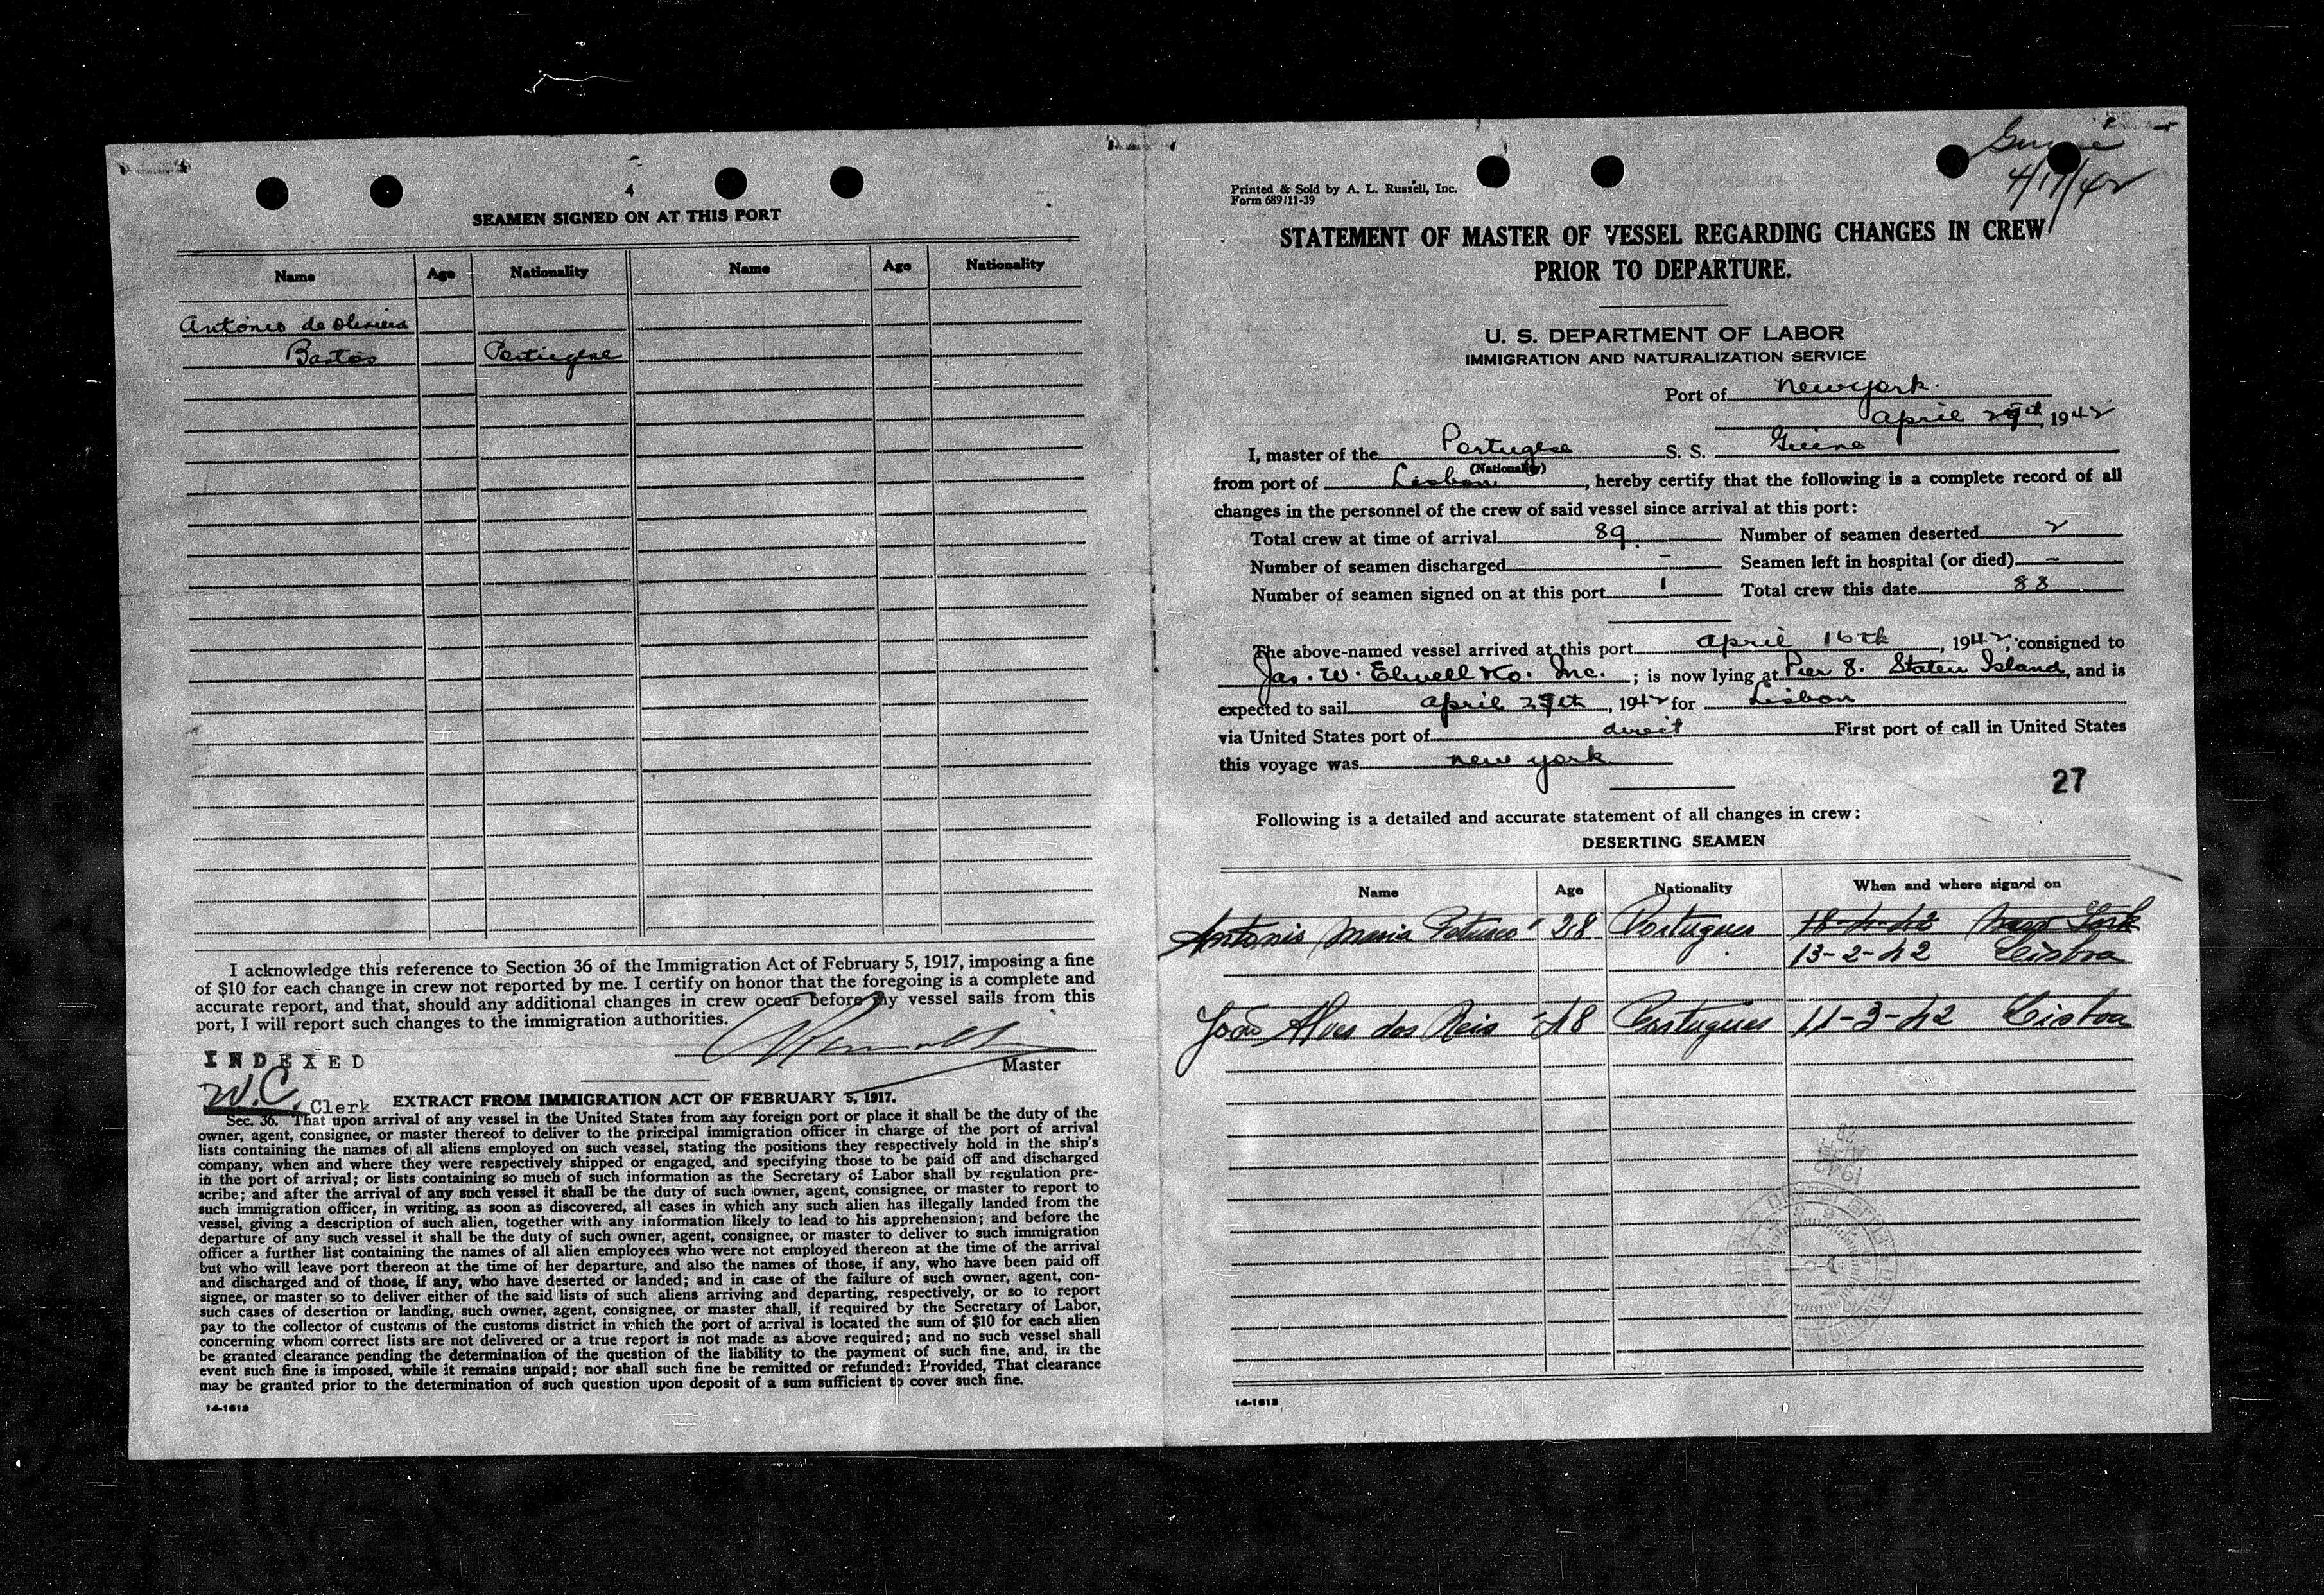 4
SEAMEN SIGNED ON AT THIS PORT
Name Age Nationality Name Age Nationality
António de Oliveira
Bastos Portugese
I acknowledge this reference to Section 36 of the Immigration Act of February 5, 1917, imposing a fine
of $10 for each change in crew not reported by me. I certify on honor that the foregoing is a complete and
accurate report, and that, should any additional changes in crew occur before my vessel sails from this
port, I will report such changes to the immigration authorities.
INDEXED
Master
W.C. Clerk
EXTRACT FROM IMMIGRATION ACT OF FEBRUARY 5, 1917.
Sec. 36. That upon arrival of any vessel in the United States from any foreign port or place it shall be the duty of the
owner, agent, consignee, or master thereof to deliver to the principal immigration officer in charge of the port of arrival
lists containing the names of all aliens employed on such vessel, stating the positions they respectively hold in the ship's
company, when and where they were respectively shipped or engaged, and specifying those to be paid off and discharged
in the port of arrival; or lists containing so much of such information as the Secretary of Labor shall by regulation pre-
scribe; and after the arrival of any such vessel it shall be the duty of such owner, agent, consignee, or master to report to
such immigration officer, in writing, as soon as discovered, all cases in which any such alien has illegally landed from the
vessel, giving a description of such alien, together with any information likely to lead to his apprehension; and before the
departure of any such vessel it shall be the duty of such owner, agent, consignee, or master to deliver to such immigration
officer a further list containing the names of all alien employees who were not employed thereon at the time of the arrival
but who will leave port thereon at the time of her departure, and also the names of those, if any, who have been paid off
and discharged and of those, if any, who have deserted or landed; and in case of the failure of such owner, agent, con-
signee, or master so to deliver either of the said lists of such aliens arriving and departing, respectively, or so to report
such cases of desertion or landing, such owner, agent, consignee, or master shall, if required by the Secretary of Labor,
pay to the collector of customs of the customs district in which the port of arrival is located the sum of $10 for each alien
concerning whom correct lists are not delivered or a true report is not made as above required; and no such vessel shall
be granted clearance pending the determination of the question of the liability to the payment of such fine, and, in the
event such fine is imposed, while it remains unpaid; nor shall such fine be remitted or refunded: Provided, That clearance
may be granted prior to the determination of such question upon deposit of a sum sufficient to cover such fine.
14-1613
4/17/42
Printed & Sold by A. L. Russell, Inc.
Form 689 11-39
STATEMENT OF MASTER OF VESSEL REGARDING CHANGES IN CREW
PRIOR TO DEPARTURE.
U. S. DEPARTMENT OF LABOR
IMMIGRATION AND NATURALIZATION SERVICE
Port of New York.
April 29th, 1942
I, master of the Portugese S. S. Guine
(Nationality)
from port of Lisbon, hereby certify that the following is a complete record of all
changes in the personnel of the crew of said vessel since arrival at this port:
Total crew at time of arrival 89. Number of seamen deserted 2
Number of seamen discharged - Seamen left in hospital (or died) -
Number of seamen signed on at this port 1 Total crew this date 88
The above-named vessel arrived at this port April 16th, 1942, consigned to
Jas. W. Elwell & Co. Inc.; is now lying at Pier 8. Staten Island, and is
expected to sail April 29th, 1942 for Lisbon
via United States port of direct First port of call in United States
this voyage was New York
27
Following is a detailed and accurate statement of all changes in crew:
DESERTING SEAMEN
Name Age Nationality When and where signed on
Antonio Maria 28 Portugues 18-4-42 New York
13-2-42 Lisboa
João Alves dos Reis 48 Portugues 11-3-42 Lisboa
14-1613